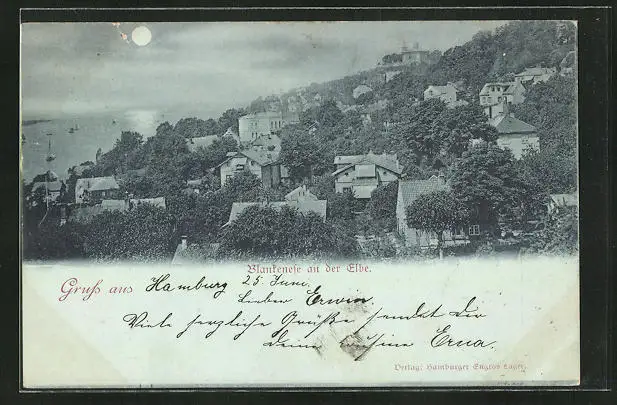 Blankenese an der Elbe.
Gruß aus Hamburg 25. Juni
Lieben Erwin
Viele herzliche Grüße sendet Dir
Deine Cousine Erna.
Verlag: Hamburger Engros Lager.